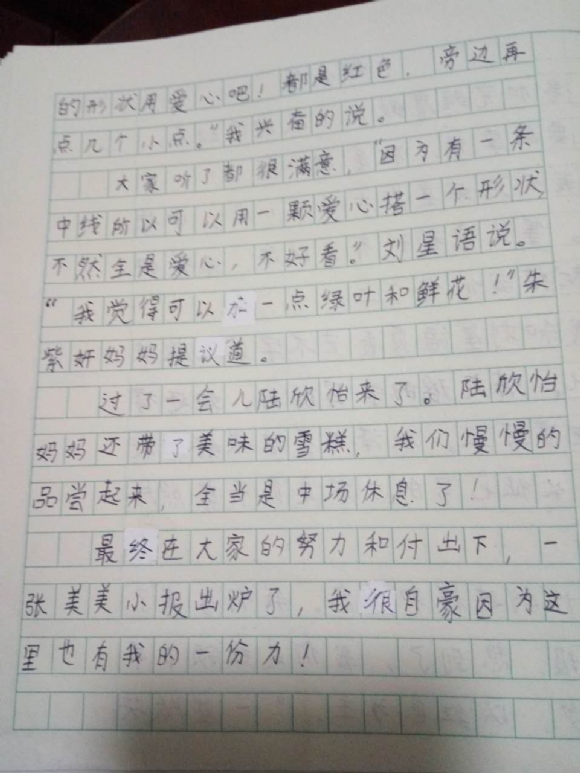 的形状用爱心吧！都是红色，旁边再
点几个小点。”我兴奋的说。
大家听了都很满意，“因为有一条
中线所以可以用一颗爱心搭一个形状，
不然全是爱心，不好看。”刘星语说。
“我觉得可以加一点绿叶和鲜花！”朱
紫妍妈妈提议道。
过了一会儿陆欣怡来了。陆欣怡
妈妈还带了美味的雪糕，我们慢慢的
品尝起来，全当是中场休息了！
最终在大家的努力和付出下，一
张美美小报出炉了，我很自豪因为这
里也有我的一份力！